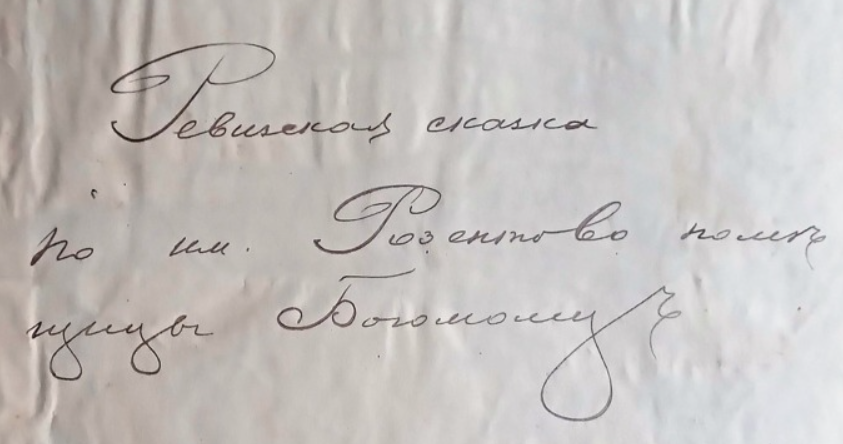 Ревизская сказка
по им. Розентово помѣ
щицы Богомолецъ